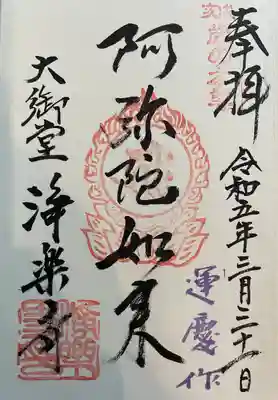 奉拝
令和五年三月二十一日
運慶作
阿弥陀如来
大御堂 浄楽寺